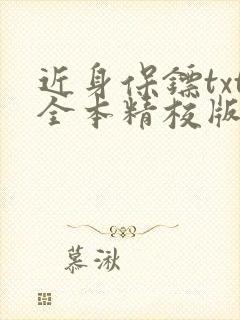 近身保镖txt
全本精校版
慕湫